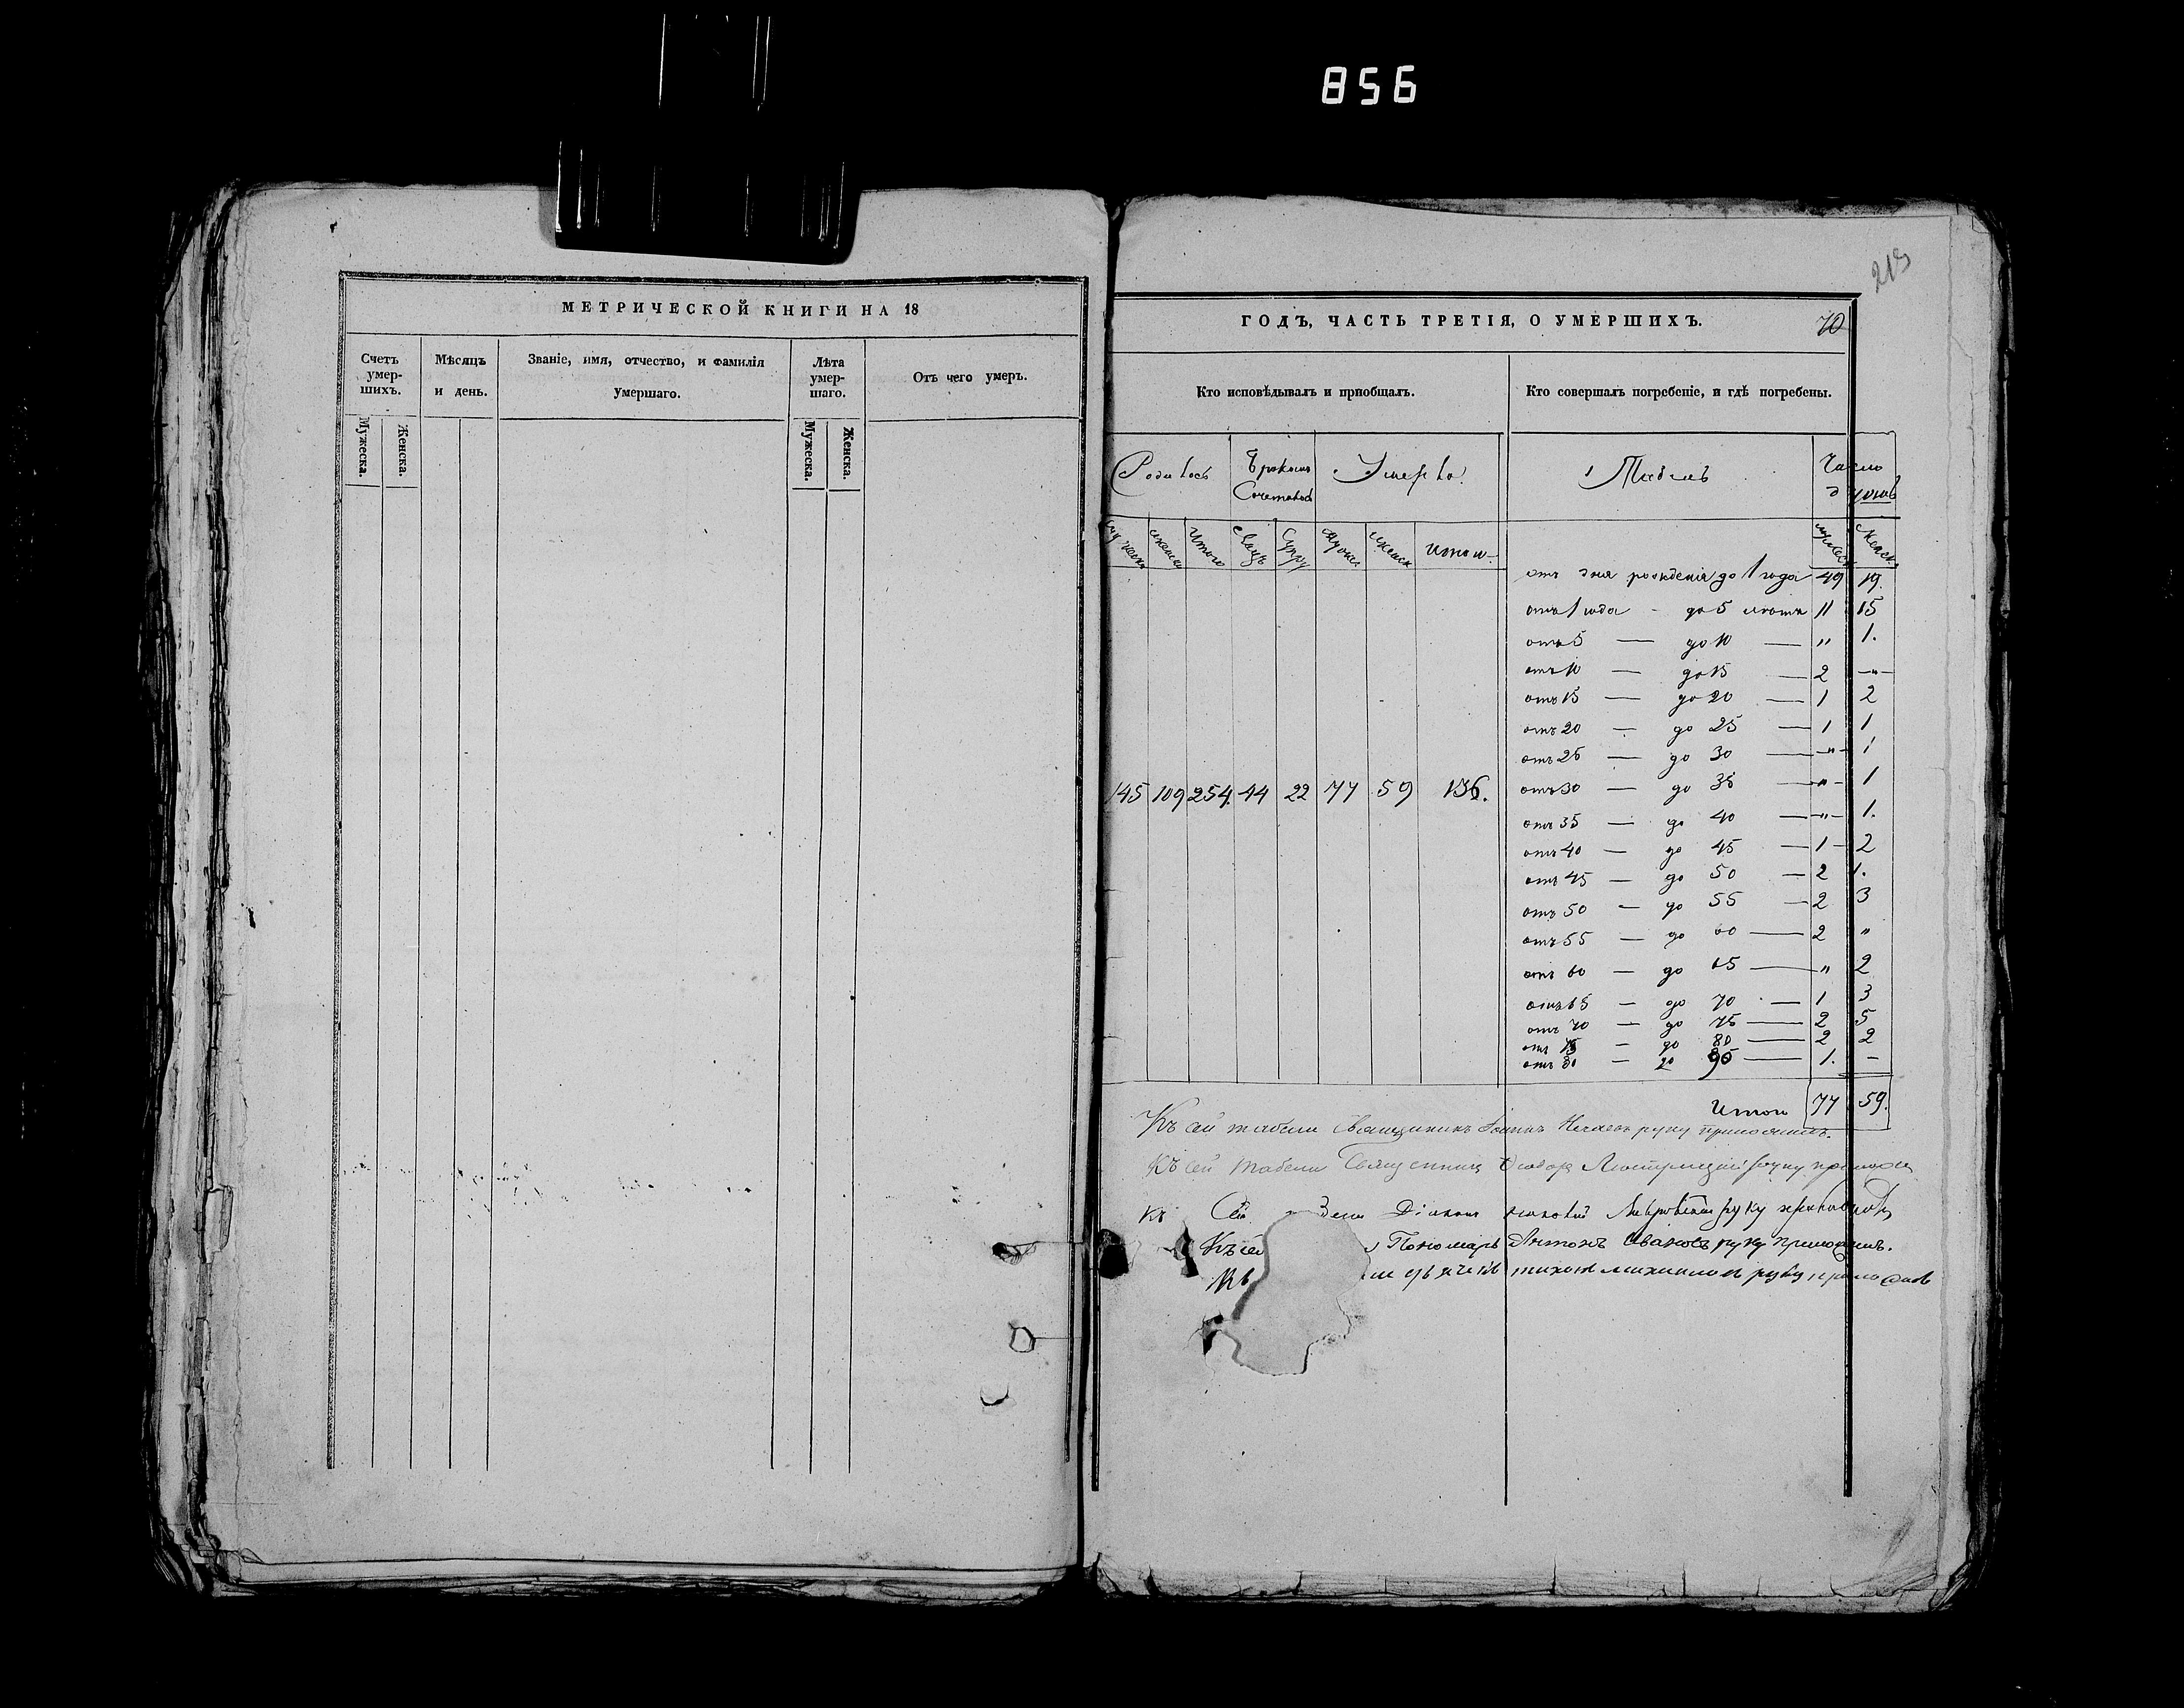 856
213
МЕТРИЧЕСКОЙ КНИГИ НА 18
Счетъ умер-шихъ.
Мѣсяцъ и день.
Званіе, имя, отчество, и фамилія умершаго.
Лѣта умер-шаго.
Отъ чего умеръ.
Мужеска. Женска. Мужеска. Женска.
ГОДЪ, ЧАСТЬ ТРЕТІЯ, О УМЕРШИХЪ. 70
Кто исповѣдывалъ и пріобщалъ.
Кто совершалъ погребеніе, и гдѣ погребены.
Родилось
Бракомъ Сочеталось
Умерло.
Табель
Число душъ
Итого
Итого
145 109 254. 44 22 77 59 136.
отъ дня рожденія до 1 года 49 19.
отъ 1 года - до 5 лѣтъ 11 15
отъ 5 — до 10 — " 1.
отъ 10 — до 15 — 2 —"—
отъ 15 — до 20 — 1 2
отъ 20 — до 25 — 1 1
отъ 25 — до 30 —"— 1
отъ 30 — до 35 —"— 1
отъ 35 — до 40 —"— 1.
отъ 40 — до 45 — 1 — 2
отъ 45 — до 50 — 2 1.
отъ 50 — до 55 — 2 3
отъ 55 — до 60 — 2 "
отъ 60 — до 65 — " 2
отъ 65 — до 70 — 1 3
отъ 70 — до 75 — 2 5
отъ 75 — до 80 — 2 2
отъ 80 — до 90 — 1. —
Итого 77 59.
Къ сей табели Священникъ Іоаннъ руку приложилъ.
Къ сей табели Священникъ Ѳеодоръ руку
Къ Сей Діаконъ руку приложилъ
Къ сей Пономарь Антонъ Ивановъ руку приложилъ.
Къ дьячекъ тихонъ михаиловъ руку приложилъ